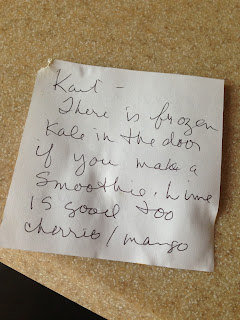 Kait -
There is frozen
Kale in the door
if you make a
Smoothie. Lime
is good too
cherries/mango